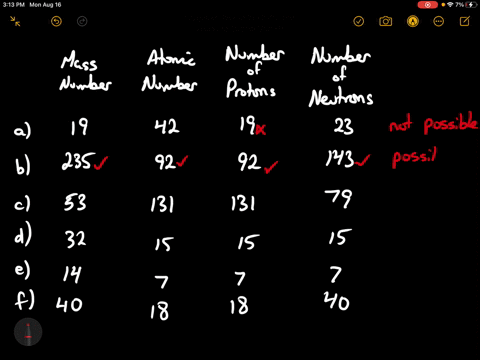 3:13 PM Mon Aug 16
7%
Mass Number Atomic Number Number of Protons Number of Neutrons
a) 19 42 19 x 23 not possible
b) 235 ✓ 92 ✓ 92 ✓ 143 ✓ possil
c) 53 131 131 79
d) 32 15 15 15
e) 14 7 7 7
f) 40 18 18 40